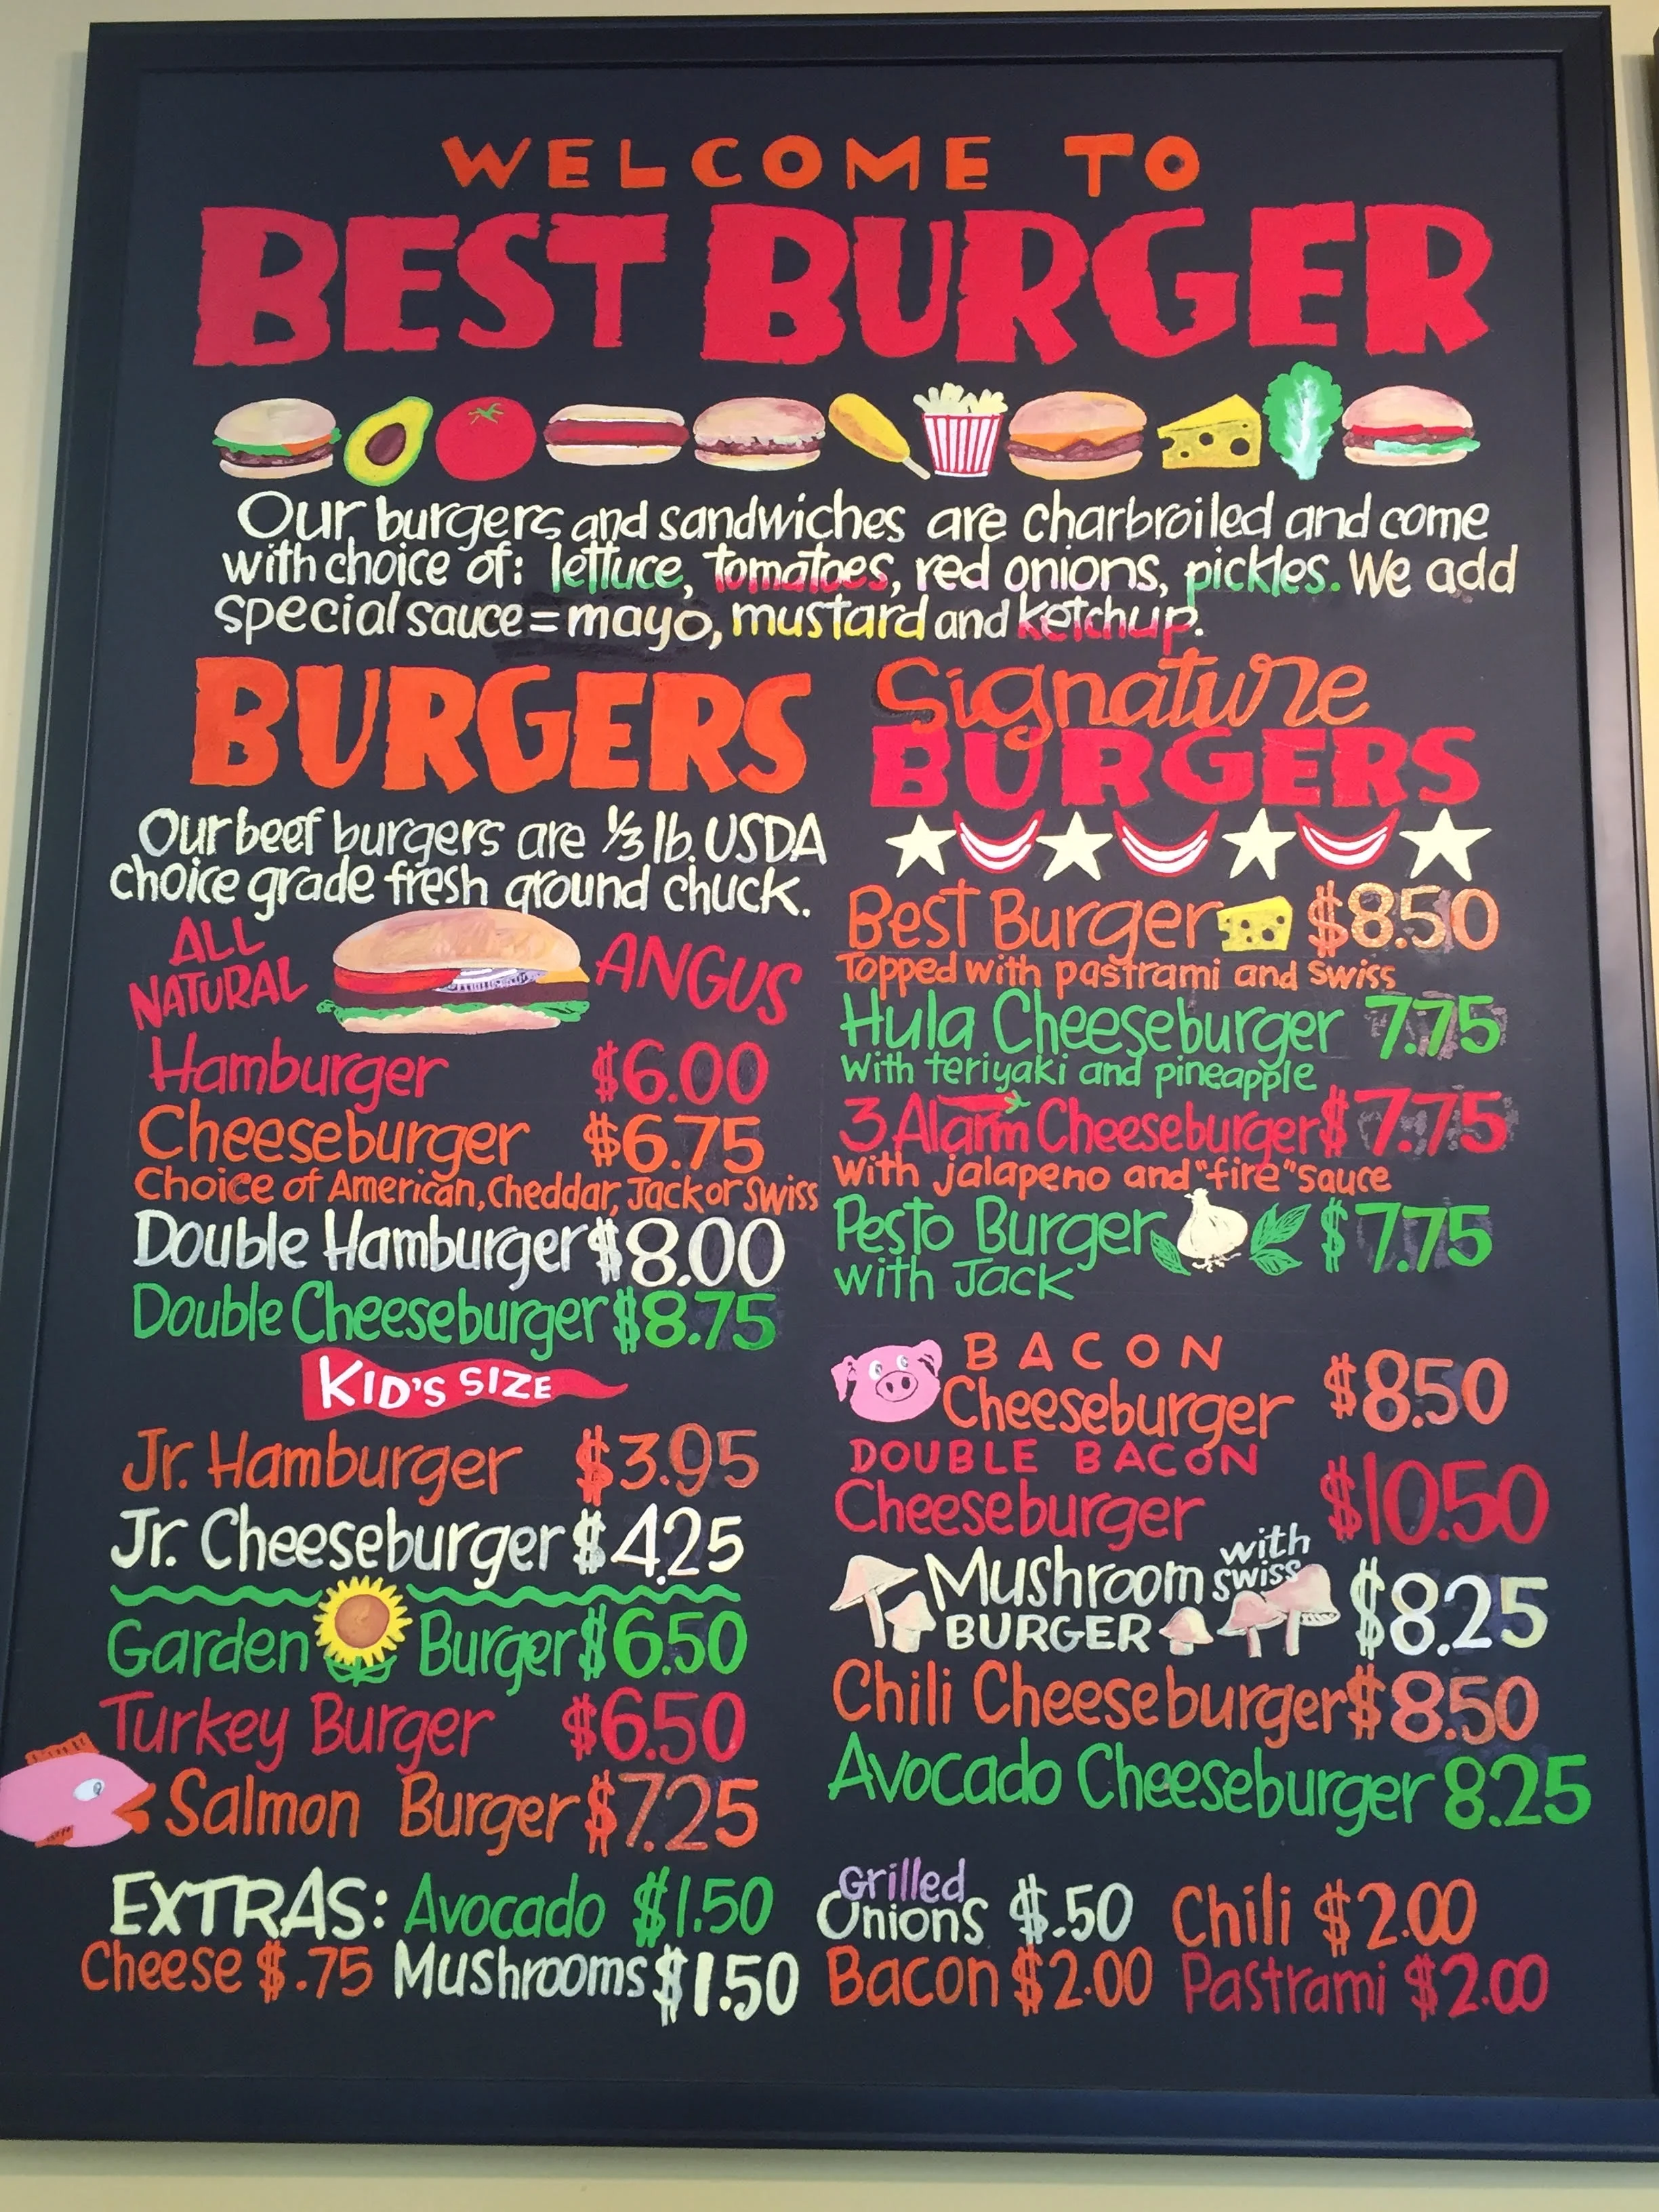 WELCOME TO
BEST BURGER
Our burgers and sandwiches are charbroiled and come
with choice of: lettuce, tomatoes, red onions, pickles. We add
special sauce = mayo, mustard and ketchup.
BURGERS
Our beef burgers are 1/3 lb. USDA
choice grade fresh ground chuck.
ALL
NATURAL
ANGUS
Hamburger $6.00
Cheeseburger $6.75
Choice of American, Cheddar, Jack or Swiss
Double Hamburger $8.00
Double Cheeseburger $8.75
KID'S SIZE
Jr. Hamburger $3.95
Jr. Cheeseburger $4.25
Garden Burger $6.50
Turkey Burger $6.50
Salmon Burger $7.25
Signature
BURGERS
Best Burger $8.50
Topped with pastrami and Swiss
Hula Cheeseburger 7.75
With teriyaki and pineapple
3 Alarm Cheeseburger $7.75
With jalapeno and "fire" sauce
Pesto Burger $7.75
with Jack
BACON
Cheeseburger $8.50
DOUBLE BACON
Cheeseburger $10.50
Mushroom with
swiss
BURGER $8.25
Chili Cheeseburger $8.50
Avocado Cheeseburger 8.25
EXTRAS: Avocado $1.50 Grilled Onions $.50 Chili $2.00
Cheese $.75 Mushrooms $1.50 Bacon $2.00 Pastrami $2.00